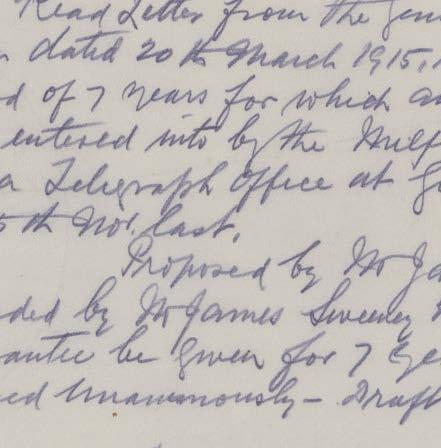 Read Letter from the Gen
dated 20th March 1915,
d of 7 years for which a
entered into by the Milf
a Telegraph Office at G
5th Nov. last.
Proposed by Mr Ja
ded by Mr James Sweeney
antee be given for 7 Ye
ed Unanimously - Draft